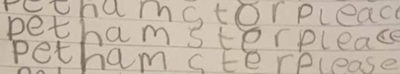 pet hamstorpleacc
pet hamsterplease
pet hamcterplease